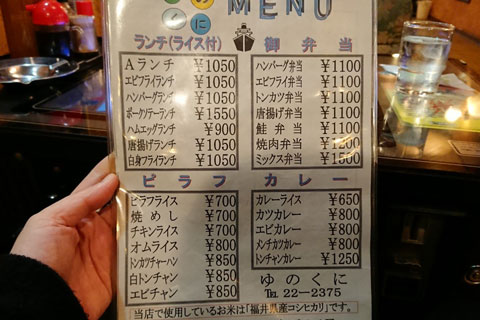 MENU
ランチ(ライス付)
Aランチ ¥1050
エビフライランチ ¥1050
ハンバーグランチ ¥1050
ポークソテーランチ ¥1550
ハムエッグランチ ¥900
唐揚げランチ ¥1050
白身フライランチ ¥1050
御弁当
ハンバーグ弁当 ¥1100
エビフライ弁当 ¥1100
トンカツ弁当 ¥1100
唐揚げ弁当 ¥1100
鮭弁当 ¥1100
焼肉弁当 ¥1200
ミックス弁当 ¥1500
ピラフ
ピラフライス ¥700
焼めし ¥700
チキンライス ¥700
オムライス ¥800
トンカツチャーハン ¥850
白トンチャン ¥850
エビチャン ¥850
カレー
カレーライス ¥650
カツカレー ¥800
エビカレー ¥800
メンチカツカレー ¥800
トンチャンカレー ¥1250
ゆのくに
TEL 22-2375
当店で使用しているお米は「福井県産コシヒカリ」です。